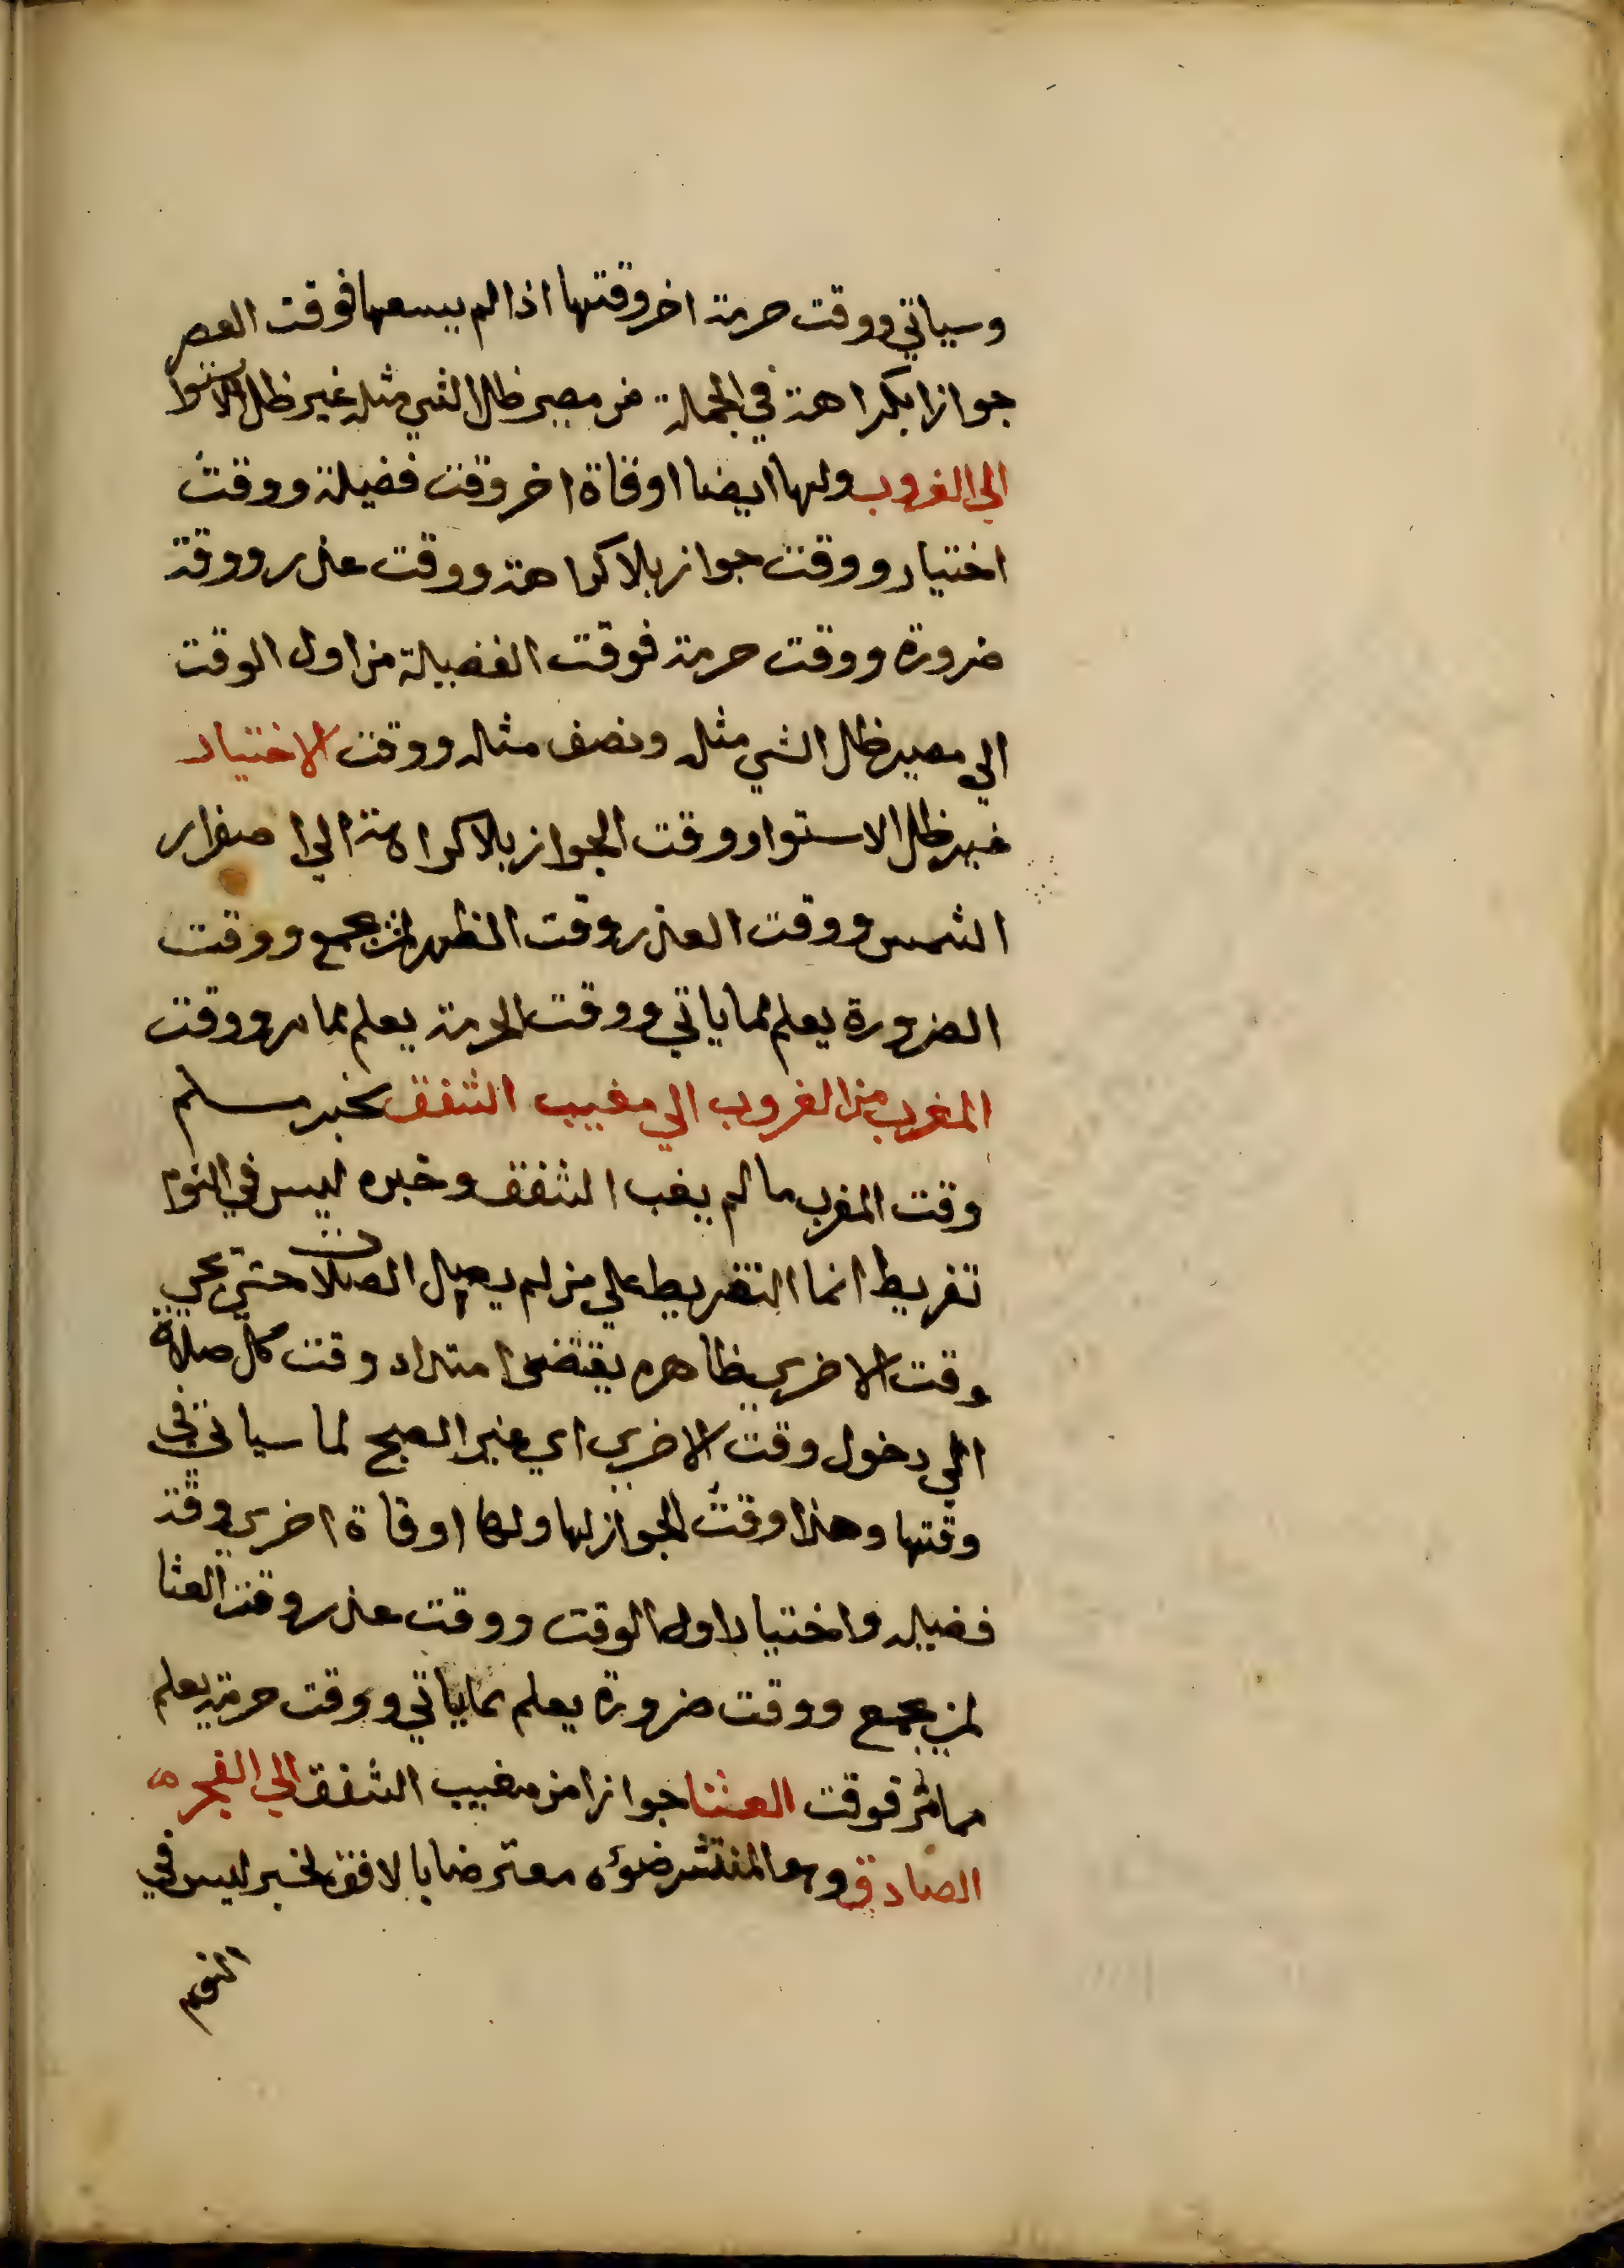 وسياتي ووقت حرمة اخر وقتها اذا لم يسعها فوقت العصر
جوازا بكراهة في الجملة من مصير ظل الشي مثله غير ظل الاستوا
الي الغروب ولها ايضا اوقاة اخر وقت فضيلة ووقت
اختيار ووقت جواز بلا كراهة ووقت عذر ووقة
ضرورة ووقت حرمة فوقت الفضيلة من اول الوقت
الي مصير ظل الشي مثله ونصف مثله ووقت الاختيار
غير ظل الاستوا ووقت الجواز بلا كراهة الي اصفرار
الشمس ووقت العذر وقت الظهر لمن يجمع ووقت
الضرورة يعلم مما ياتي ووقت الحرمة يعلم مما مر ووقت
المغرب من الغروب الي مغيب الشفق بخبر مسلم
وقت المغرب ما لم يغب الشفق وخبره ليس في النوم
تفريط انما التفريط علي من لم يصل الصلات حتي يجي
وقت الاخري ظاهره يقتضي امتداد وقت كل صلاة
الي دخول وقت الاخري اي غير الصبح لما سياتي في
وقتها وهذا وقت الجواز لها ولها اوقاة اخري وقة
فضيله واختيار اول الوقت ووقت عذر وقت العشا
لمن يجمع ووقت ضرورة يعلم مما ياتي ووقت حرمة يعلم
مما مر فوقت العشا جوازا من مغيب الشفق الي الفجر
الصادق وهو المنتشر ضوؤه معترضا بالافق لخبر ليس في
النوم